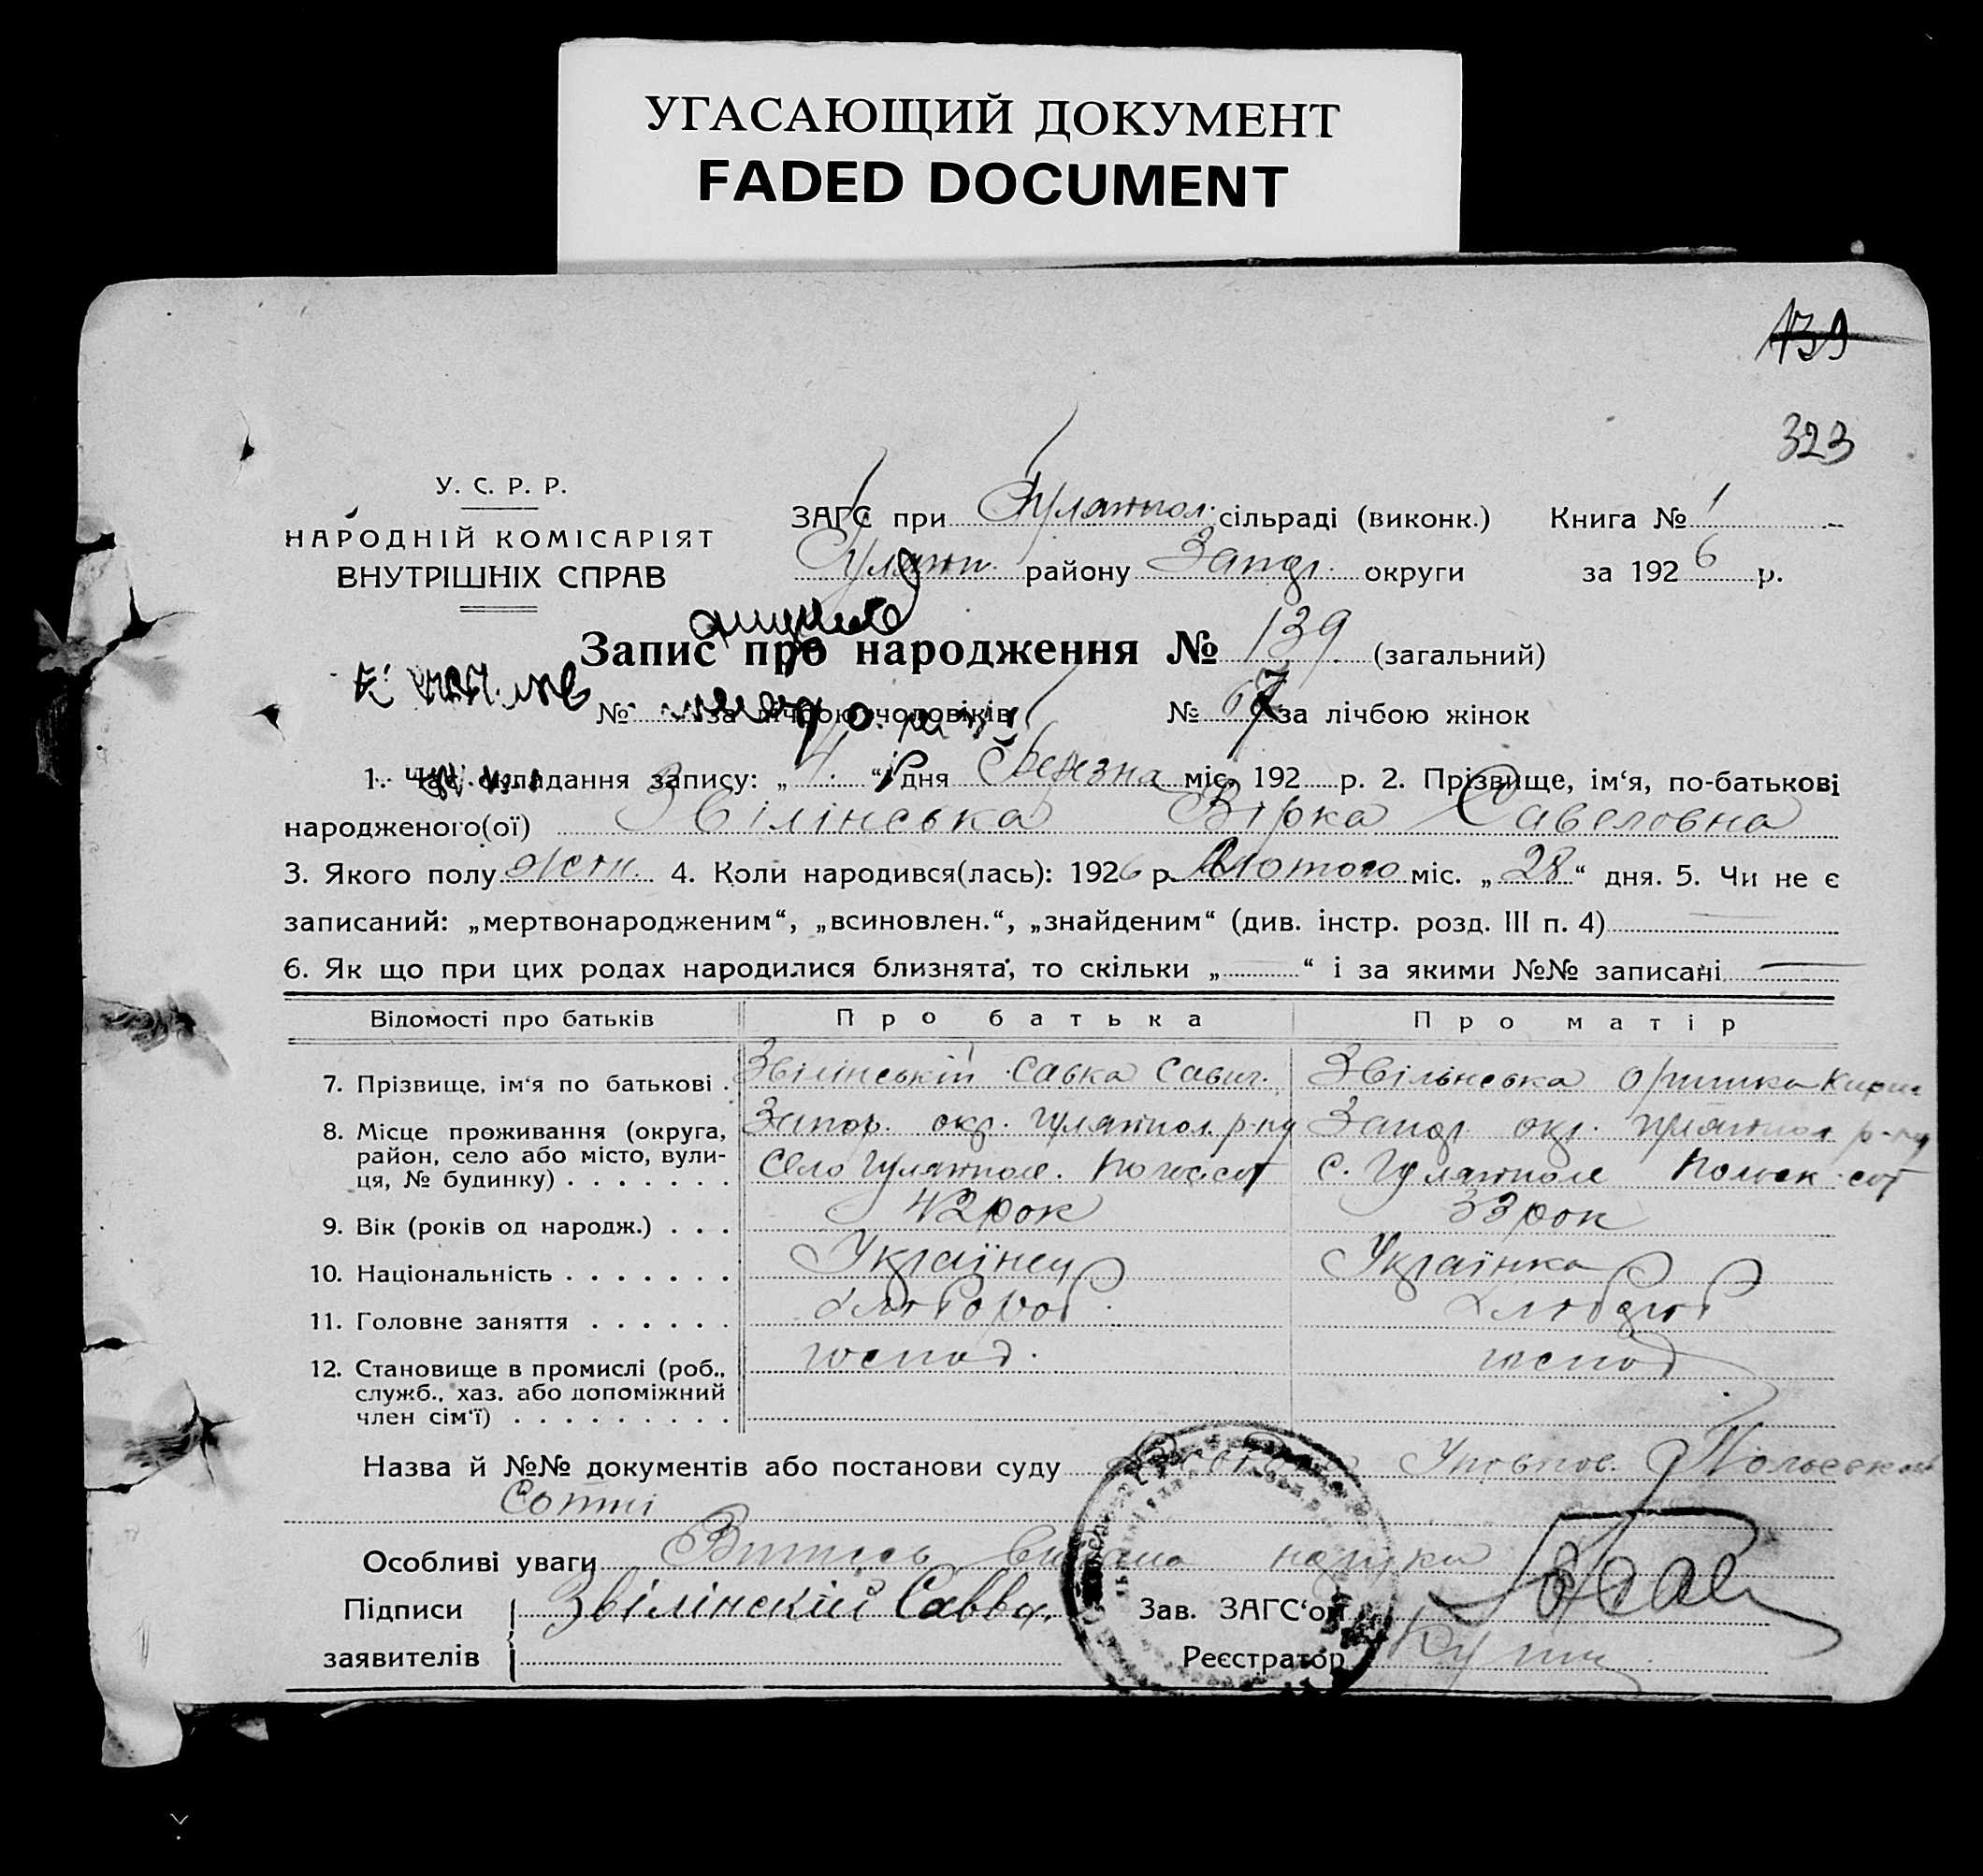 УГАСАЮЩИЙ ДОКУМЕНТ
FADED DOCUMENT
139
323
У. С. Р. Р.
НАРОДНІЙ КОМІСАРІЯТ
ВНУТРІШНІХ СПРАВ
ЗАГС при Гуляйпол. сільраді (виконк.) Книга № 1
Гуляйп. району Запор. округи за 1926 р.
Запис про народження № 139 (загальний)
№ за лічбою чоловіків № 67 за лічбою жінок
1. Час складання запису: „ 4 “ дня Березня міс. 192 р. 2. Прізвище, ім‘я, по-батькові
народженого(ої) Звілінська Вірка Савеловна
3. Якого полу жен. 4. Коли народився(лась): 1926 р. Лютого міс. „ 28 “ дня. 5. Чи не є
записаний: „мертвонародженим“, „всиновлен.“, „знайденим“ (див. інстр. розд. III п. 4)
6. Як що при цих родах народилися близнята, то скільки „ — “ і за якими №№ записані —
Відомості про батьків Про батька Про матір
7. Прізвище, ім‘я по батькові . Звілінській Савка Савич. Звільнська Оришка Кирил
8. Місце проживання (округа, район, село або місто, вулиця, № будинку) . . . . . . . Запор. окр. Гуляйпол. р-ну Запор. окр. Гуляйпол р-ну
Село Гуляйполе. с. Гуляйполе
9. Вік (років од народж.) . . . 42 рок 33 рок
10. Національність . . . . . . . Українец Українка
11. Головне заняття . . . . . . Хлібороб. Хлібороб
12. Становище в промислі (роб., служб., хаз. або допоміжний член сім‘ї) . . . . . . . . . господ. господ
Назва й №№ документів або постанови суду
Сотні
Особливі уваги Витись видана на руки
Підписи Звілінский Савва. Зав. ЗАГС‘ом
заявителів Реєстратор